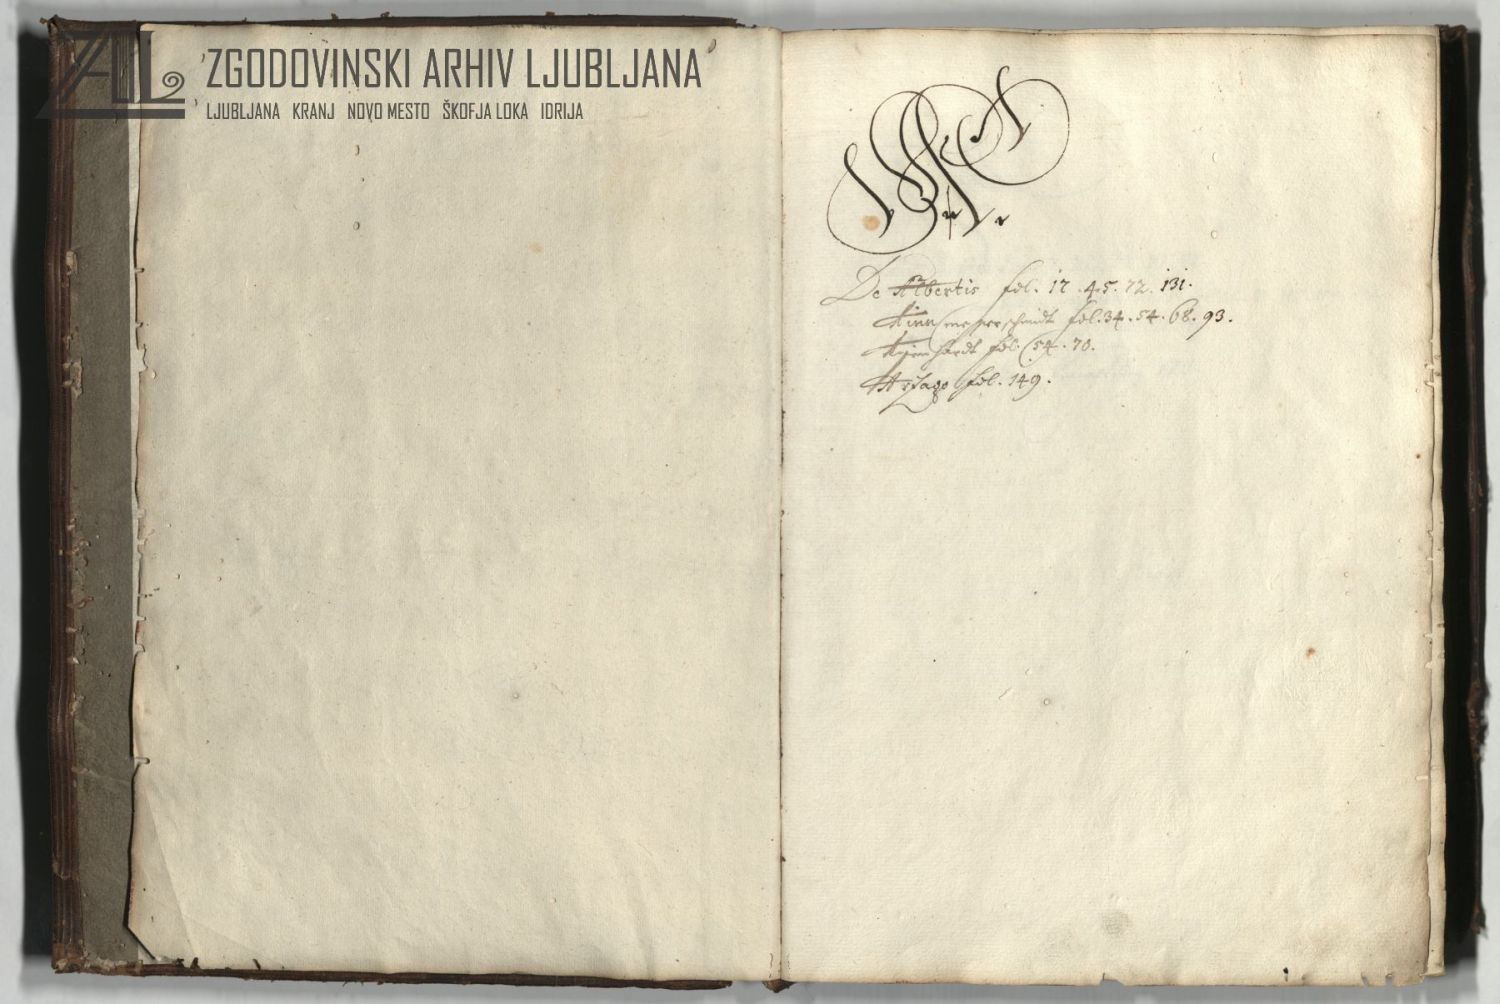 ZGODOVINSKI ARHIV LJUBLJANA
LJUBLJANA KRANJ NOVO MESTO ŠKOFJA LOKA IDRIJA
A
De Albertis fol. 17. 45. 72. 131.
fol. 34. 54. 68. 93.
fol. 54. 70.
Arzago fol. 149.